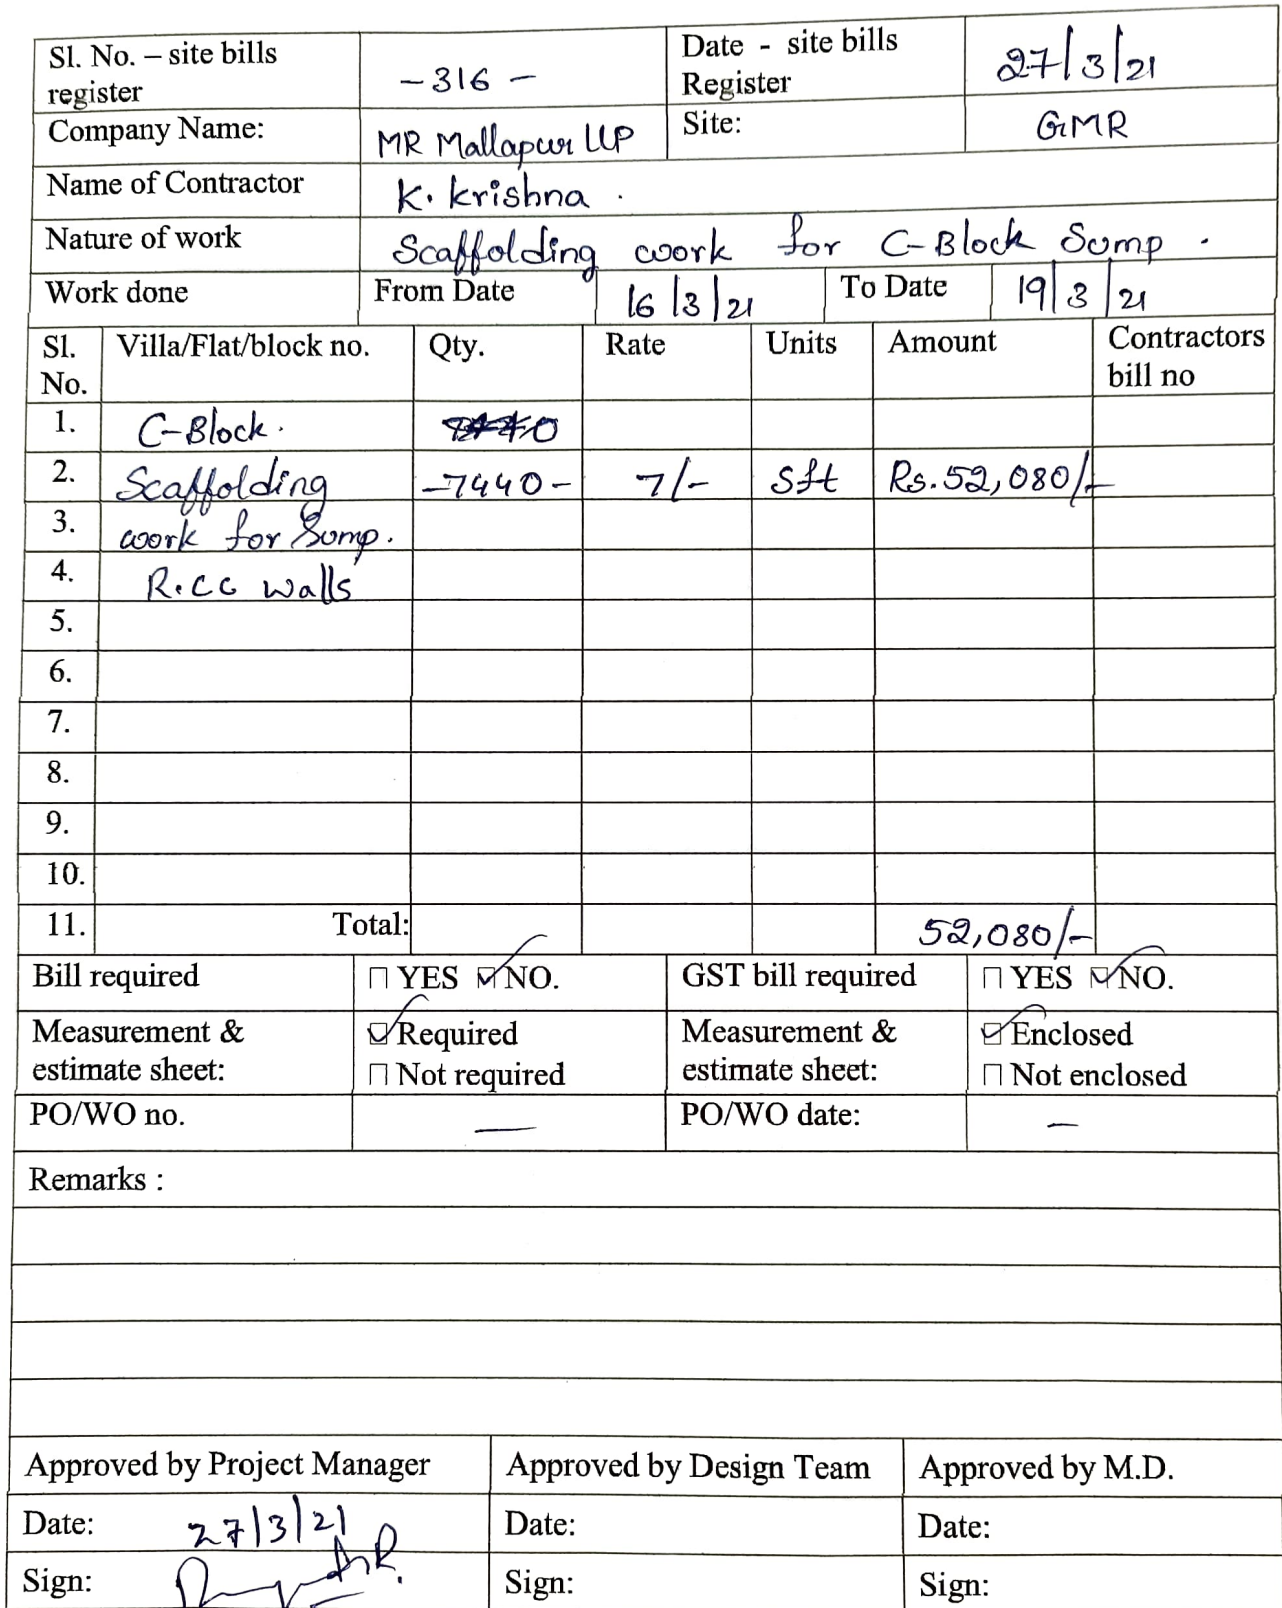 Sl. No. – site bills register -316- Date - site bills Register 27/3/21
Company Name: MR Mallapur LLP Site: GMR
Name of Contractor K. krishna.
Nature of work Scaffolding work for C-Block Sump.
Work done From Date 16/3/21 To Date 19/3/21
Sl. No. Villa/Flat/block no. Qty. Rate Units Amount Contractors bill no
1. C-Block.
2. Scaffolding -7440- 7/- Sft Rs.52,080/-
3. work for Sump.
4. R.CC Walls
5.
6.
7.
8.
9.
10.
11. Total: 52,080/-
Bill required ☐ YES ☑ NO. GST bill required ☐ YES ☑ NO.
Measurement & estimate sheet: ☑ Required ☐ Not required Measurement & estimate sheet: ☑ Enclosed ☐ Not enclosed
PO/WO no. — PO/WO date: —
Remarks :
Approved by Project Manager Approved by Design Team Approved by M.D.
Date: 27/3/21 Date: Date:
Sign: Sign: Sign: